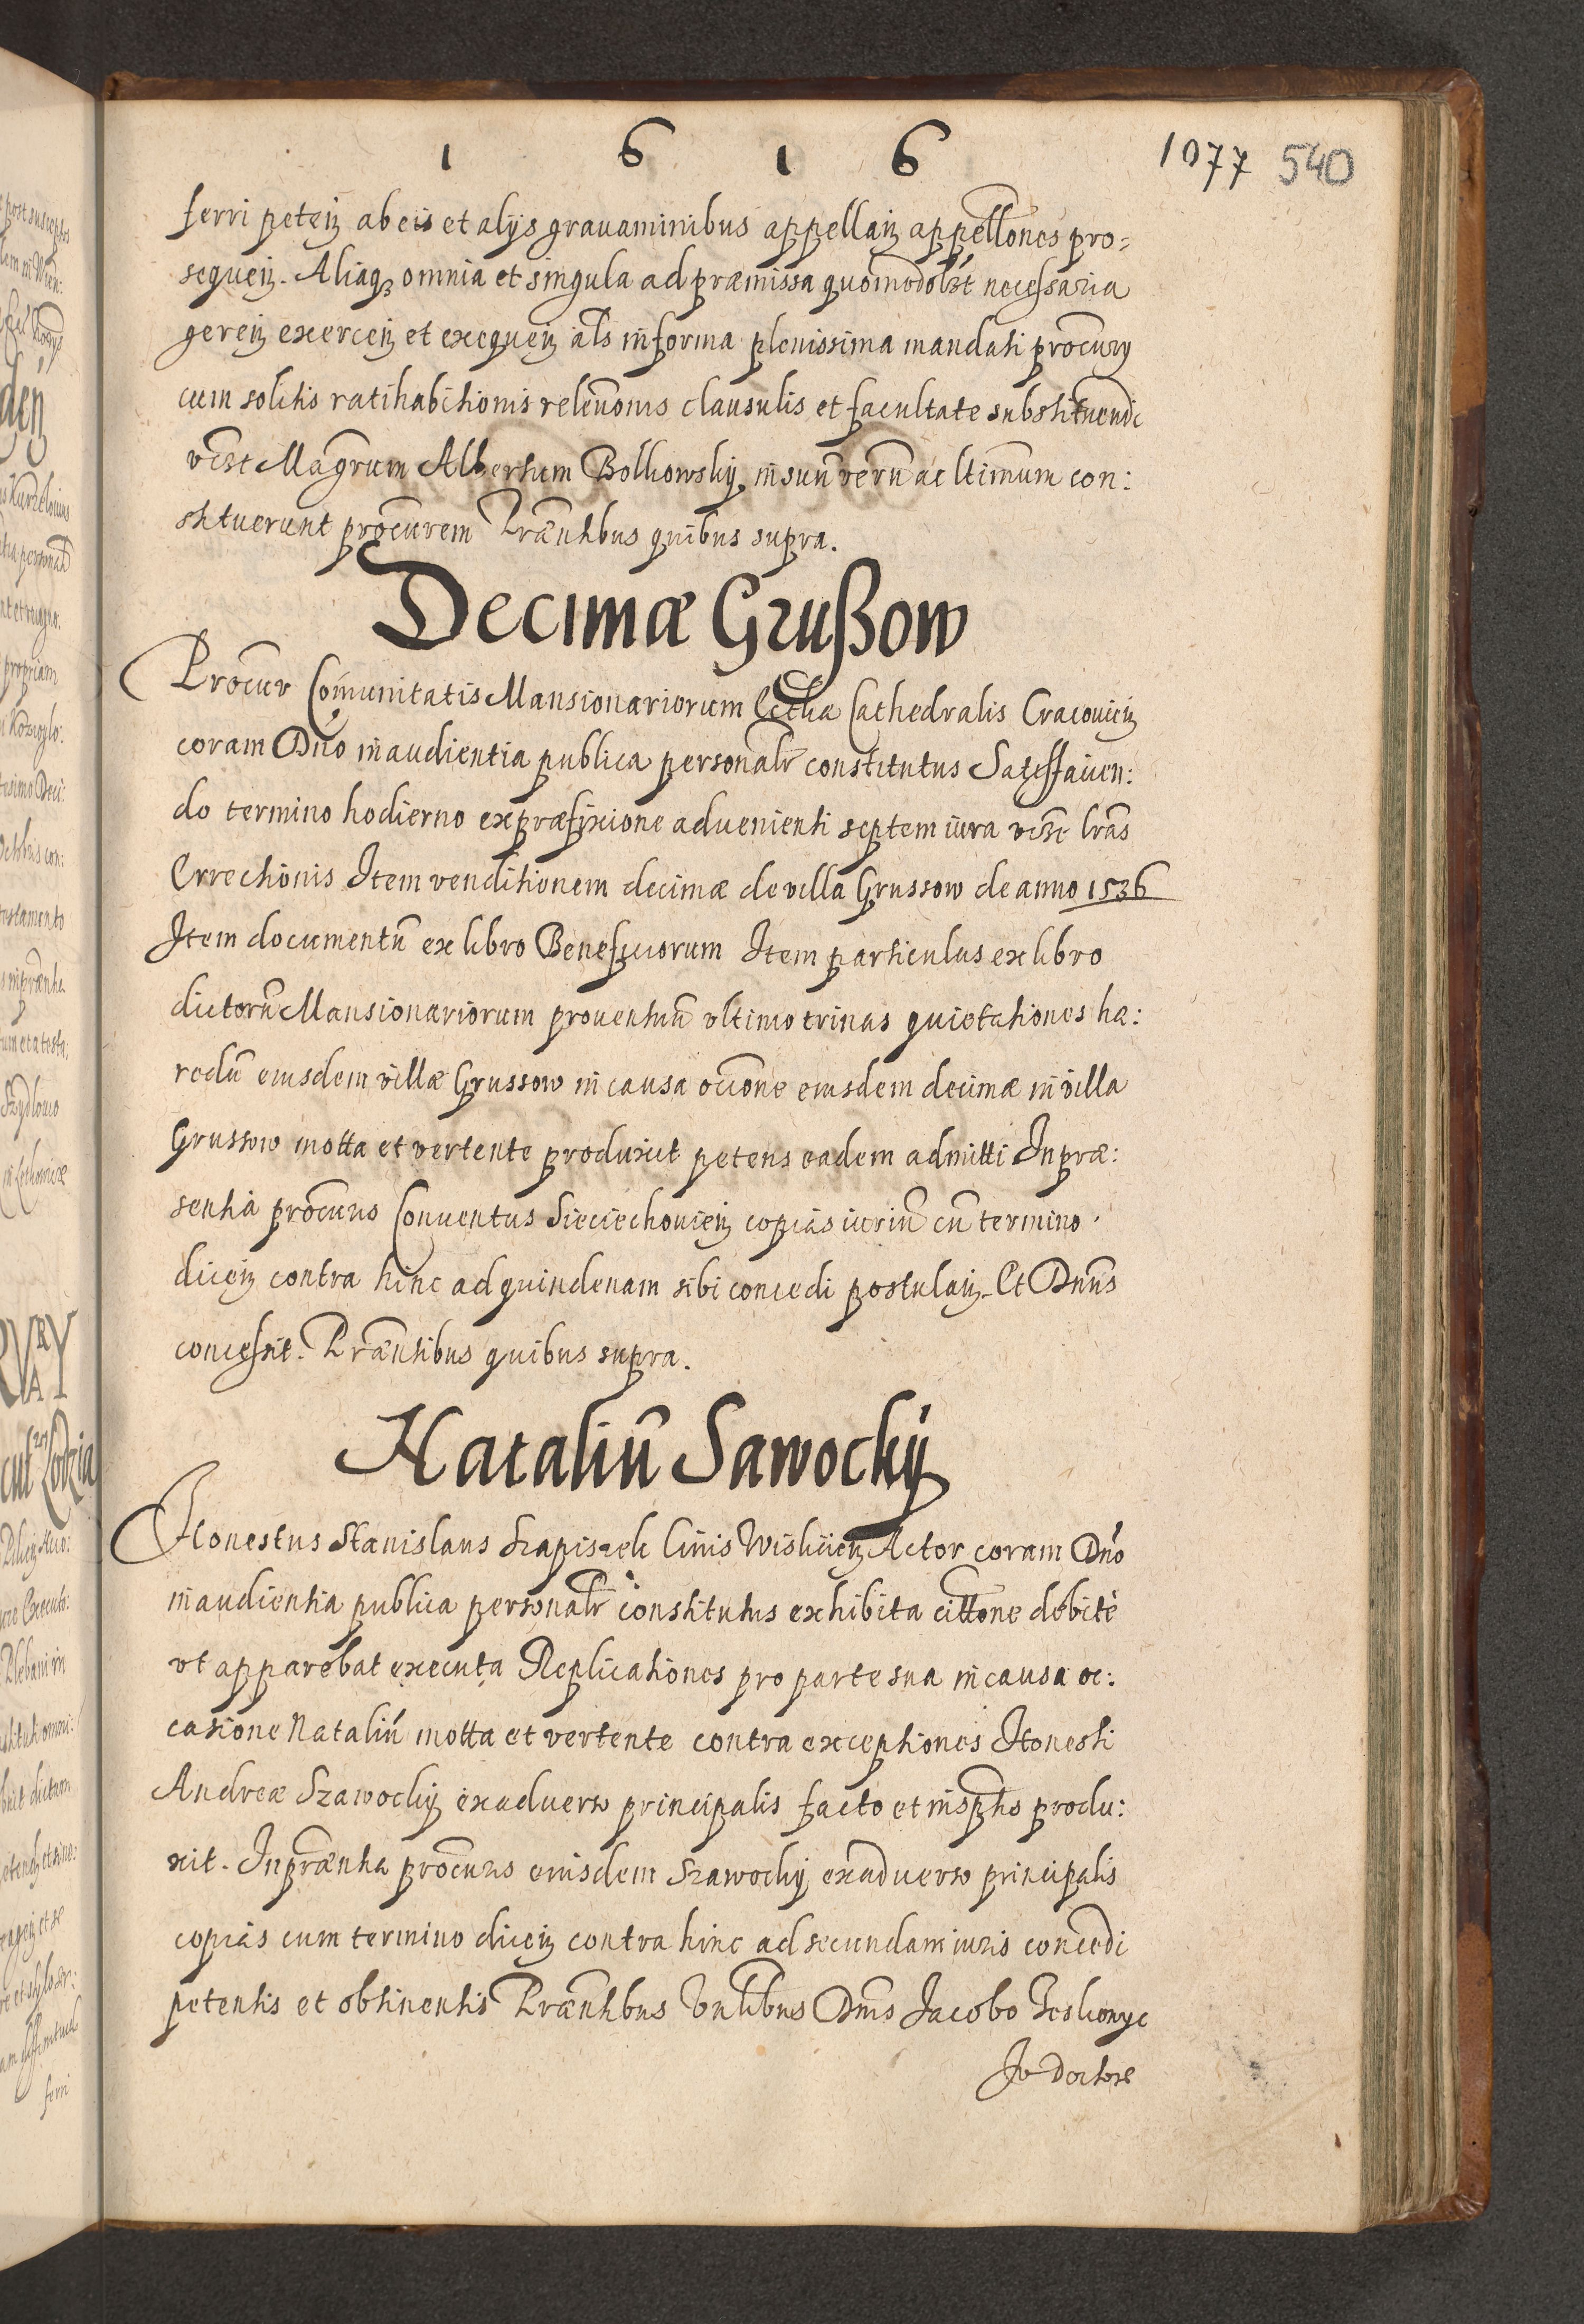 1 6 1 6
1077 540
ferri peteñ ab eis et alijs grauaminibus appellañ appellones pro=
sequeñ. Aliaqꝫ omnia et singula ad præmissa quomodolꝫt necessaria
gereñ exerceñ et exequeñ als in forma plenissima mandati procury
cum solitis ratihabitionis releuonis clausulis et facultate substituendi
vꝫt Magrum Albertum Bolkowskij in suũ verũ ac ltimum con:
stituerunt procurem Præntibus quibus supra.
Decimæ Grußow
Procur Comunitatis Mansionariorum Ecclæ Cathedralis Cracouieñ
coram Dno in audientia publica personalr constitutus Satisfaien:
do termino hodierno ex præfixione aduenienti septem iura vꝫt lras
Errectionis Item venditionem decimæ de villa Grussow de anno 1536
Item documentũ ex libro Beneficiorum Item particulas ex libro
dictorũ Mansionariorum prouentuũ vltimo trinas quietationes hæ:
redũ eiusdem villæ Grussow in causa occone eiusdem decimæ in villa
Grussow motta et vertente produxit petens eadem admitti In præ:
sentia procuris Conuentus Sieciechouieñ copias iuriũ cũ termino
diceñ contra hinc ad quindenam sibi concedi postulañ. Et Dnus
concessit. Præntibus quibus supra.
Nataliũ Sawockij
Honestus Stanislaus Szapiszek Ciuis Wislicieñ Actor coram Dno
in audientia publica personalr constitutus exhibita cittone debitè
vt apparebat executa Replicationes pro parte sua in causa oc:
casione Nataliũ motta et vertente contra exceptiones Honesti
Andreæ Szawockij ex aduerso principalis facto et in sptis produ:
xit. In præntia procuris eiusdem Szawockij ex aduerso principalis
copias cum termino diceñ contra hinc ad secundam iuris concedi
petentis et obtinentis Præntibus Dnis Jacobo
Doctore